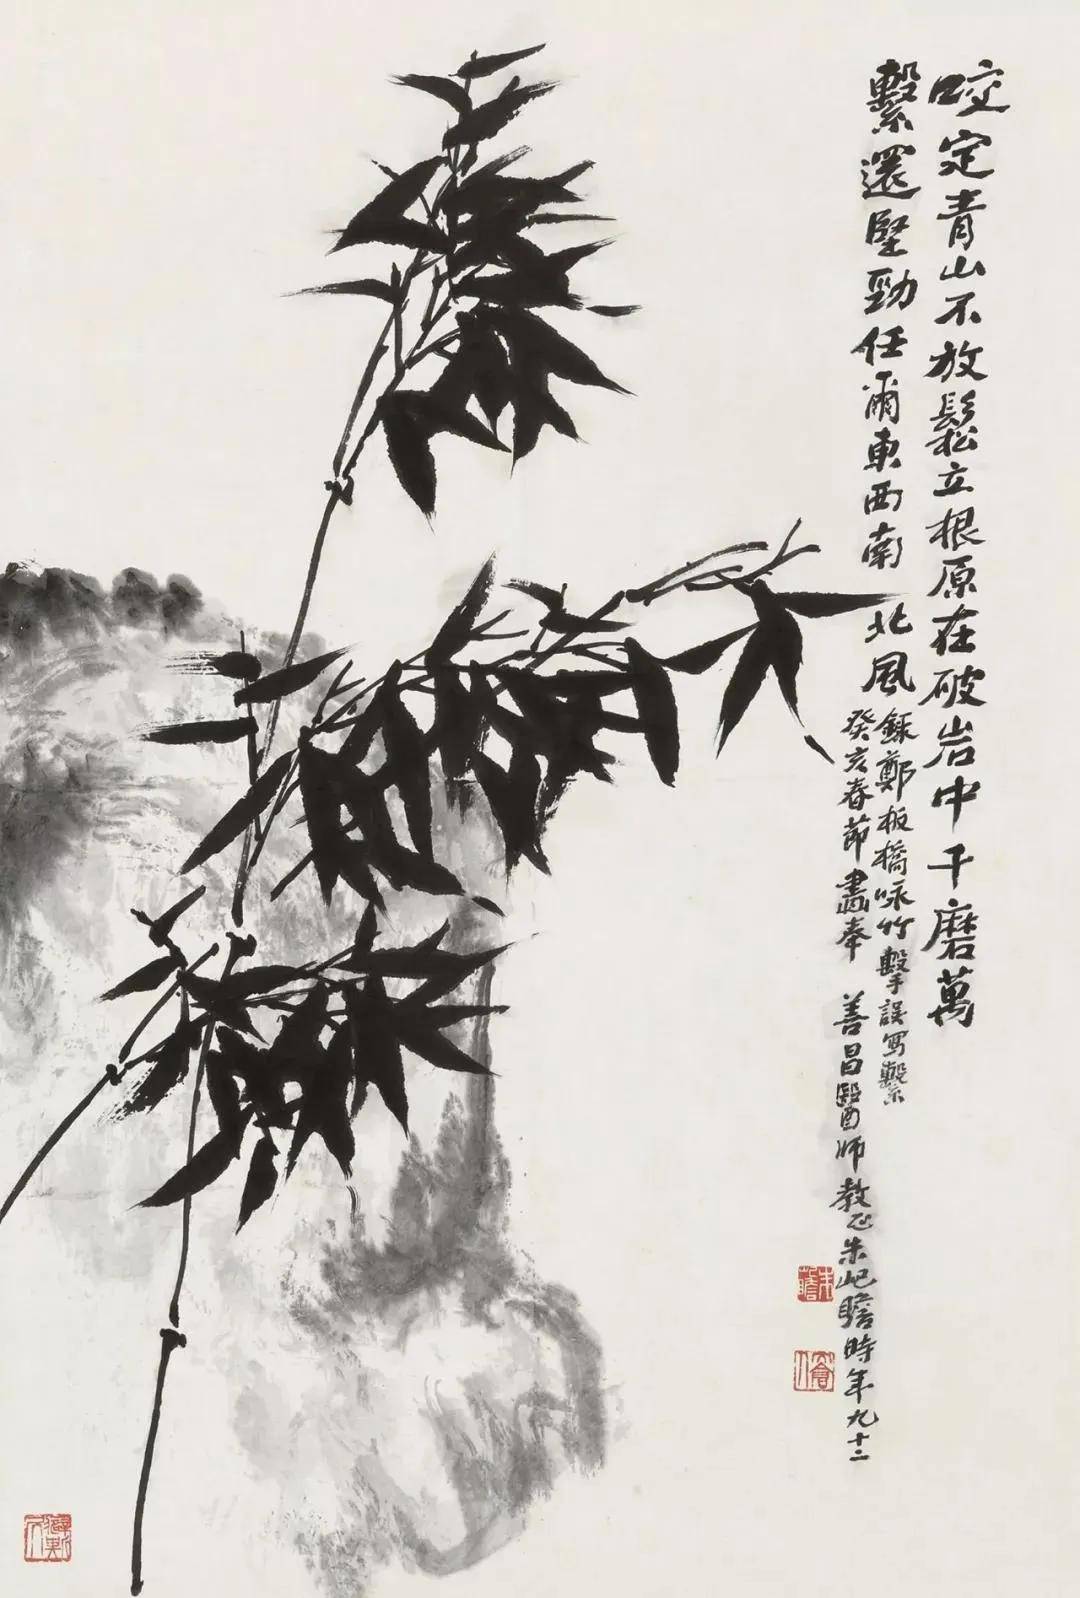 咬定青山不放鬆立根原在破岩中千磨萬
繫還堅勁任爾東西南北風
錄鄭板橋咏竹擊誤寫繫
癸亥春節畫奉 善昌醫師教正朱屺瞻時年九十二
朱
屺瞻